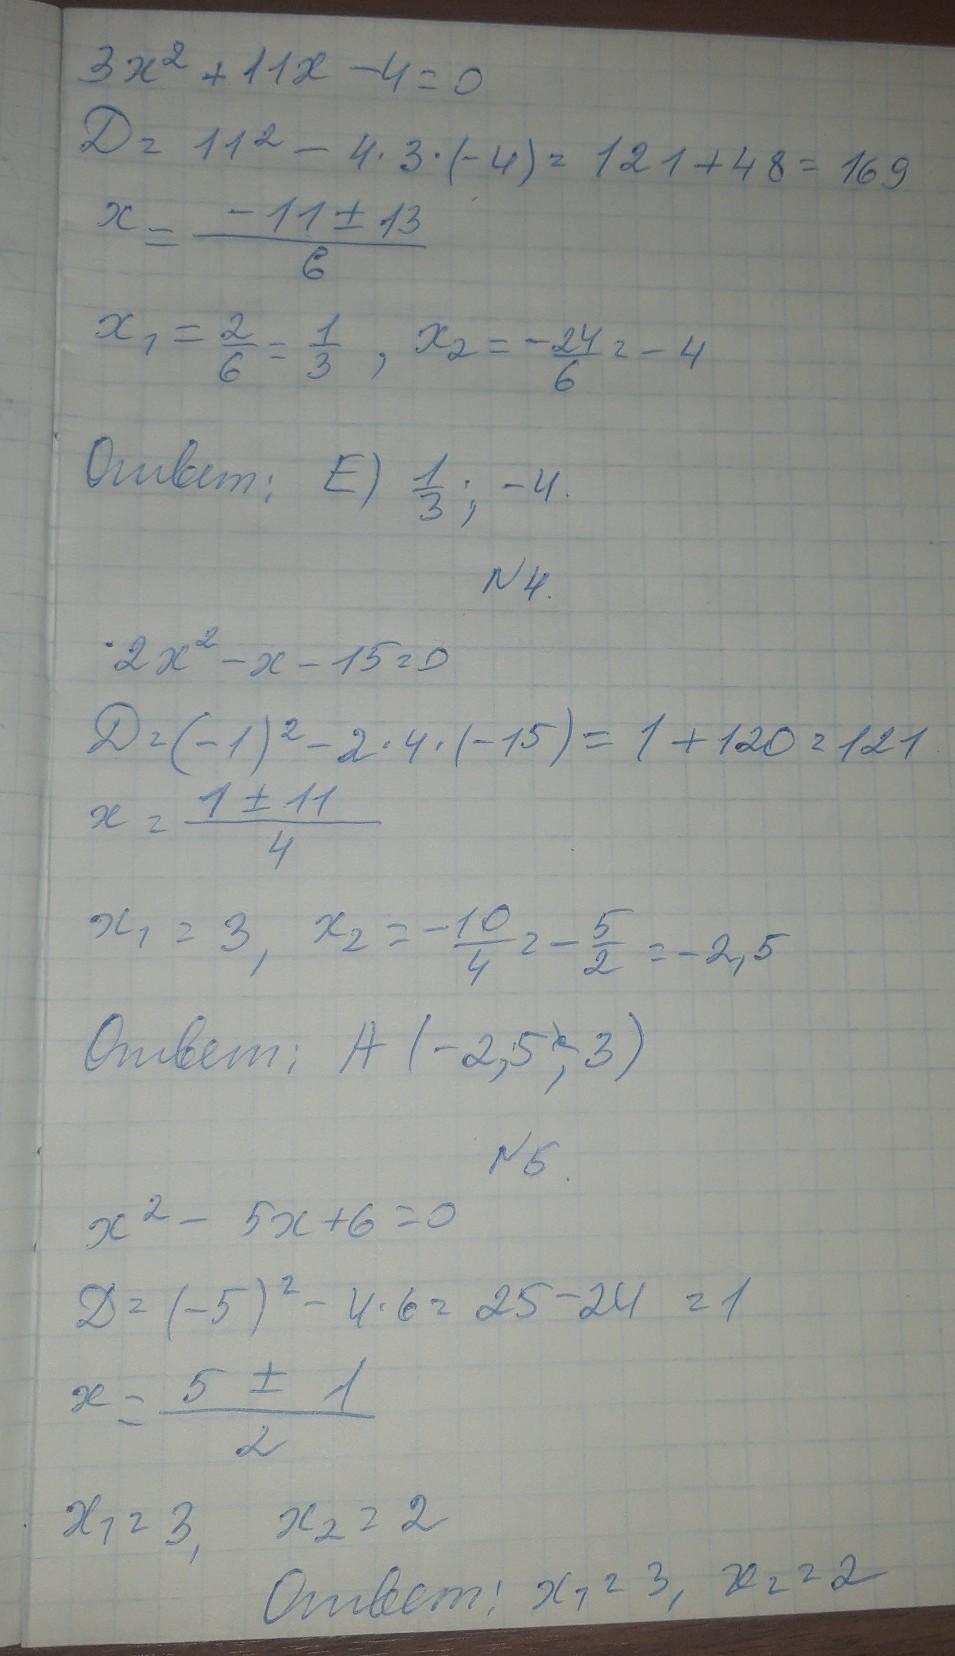 3x² + 11x - 4 = 0
D = 11² - 4·3·(-4) = 121 + 48 = 169
x = (-11 ± 13)/6
x₁ = 2/6 = 1/3, x₂ = -24/6 = -4
Ответ: E) 1/3; -4.
N4.
2x² - x - 15 = 0
D = (-1)² - 2·4·(-15) = 1 + 120 = 121
x = (1 ± 11)/4
x₁ = 3, x₂ = -10/4 = -5/2 = -2,5
Ответ: A (-2,5; 3)
N5.
x² - 5x + 6 = 0
D = (-5)² - 4·6 = 25 - 24 = 1
x = (5 ± 1)/2
x₁ = 3, x₂ = 2
Ответ: x₁ = 3, x₂ = 2